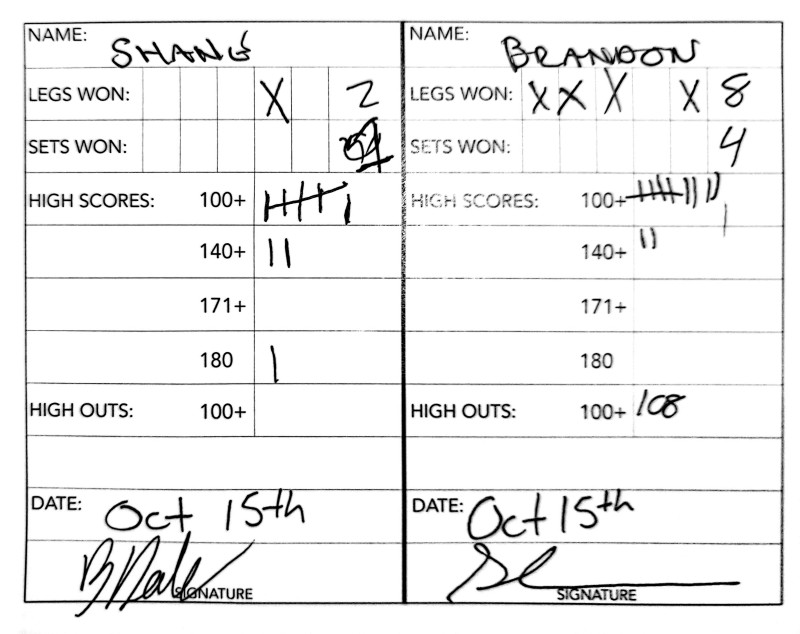 NAME: SHANE
LEGS WON: X 2
SETS WON: 1
HIGH SCORES: 100+ |||| |
140+ ||
171+
180 |
HIGH OUTS: 100+
DATE: Oct 15th
SIGNATURE
NAME: BRANDON
LEGS WON: X X X X 8
SETS WON: 4
HIGH SCORES: 100+ |||| |||| |
140+ ||
171+
180
HIGH OUTS: 100+ 108
DATE: Oct 15th
SIGNATURE